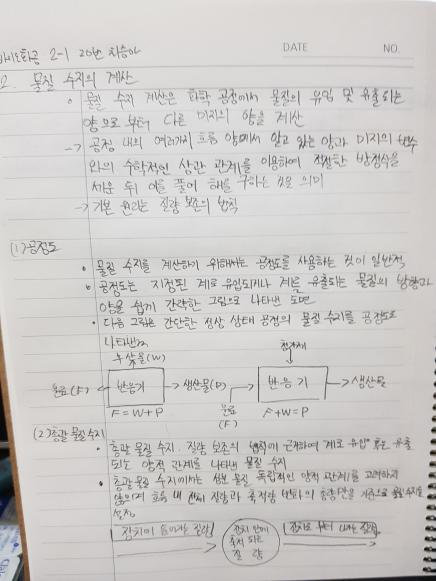 바이오화공 2-1 20번 차승아
DATE NO.
2. 물질 수지의 계산
• 물질 수지 계산은 화학 공정에서 물질의 유입 및 유출되는
양으로 부터 다른 미지의 양을 계산
→ 공정 내의 여러가지 흐름 양에서 알고 있는 양과 미지의 변수
와의 수학적인 상관 관계를 이용하여 적절한 방정식을
세운 뒤 이를 풀어 해를 구하는 것을 의미
→ 기본 원리는 질량 보존의 법칙
(1) 공정도
• 물질 수지를 계산하기 위해서는 공정도를 사용하는 것이 일반적
• 공정도는 지정된 계로 유입되거나 계를 유출되는 물질의 방향과
양을 쉽게 간략한 그림으로 나타낸 도면
• 다음 그림은 간단한 정상 상태 공정의 물질 수지를 공정도로
나타낸
(W) 첨가제
원료(F) → 반응기 → 생산물(P) 원료(F) → 반응기 → 생산물
F=W+P F+W=P
(2) 총괄 물질수지
• 총괄 물질 수지: 질량 보존의 법칙에 근거하여 계로 유입 또는 유출
되는 양적 관계를 나타낸 물질 수지
• 총괄 물질 수지에서는 성분 물질 독립적인 양적 관계를 고려하지
않으며 흐름 내 전체 질량과 축적량 변화의 총량만을 기준으로 물질수지를
설정
장치에 들어가는 질량 → 장치 안에 축적 되는 질량 장치로 부터 나가는 질량 →